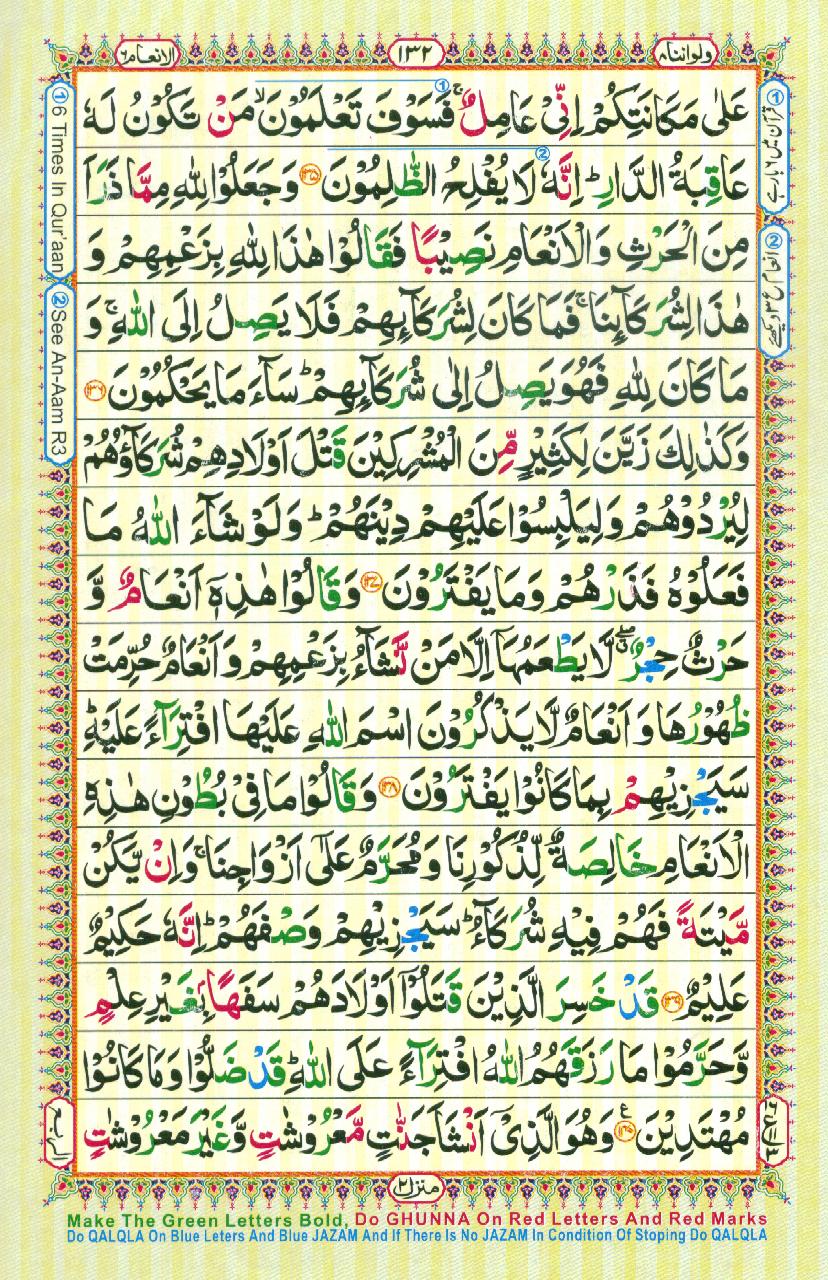 ولواننا۸
۱۳۲
الانعام۶
عَلٰى مَكَانَتِكُمْ اِنِّىْ عَامِلٌ ۚ فَسَوْفَ تَعْلَمُوْنَ ۙ مَنْ تَكُوْنُ لَهٗ
عَاقِبَةُ الدَّارِ ؕ اِنَّهٗ لَا يُفْلِحُ الظّٰلِمُوْنَ ﴿۱۳۵﴾ وَجَعَلُوْا لِلّٰهِ مِمَّا ذَرَاَ
مِنَ الْحَرْثِ وَالْاَنْعَامِ نَصِيْبًا فَقَالُوْا هٰذَا لِلّٰهِ بِزَعْمِهِمْ وَ
هٰذَا لِشُرَكَآئِنَا ۚ فَمَا كَانَ لِشُرَكَآئِهِمْ فَلَا يَصِلُ اِلَى اللّٰهِ ۚ وَ
مَا كَانَ لِلّٰهِ فَهُوَ يَصِلُ اِلٰى شُرَكَآئِهِمْ ؕ سَآءَ مَا يَحْكُمُوْنَ ﴿۱۳۶﴾
وَكَذٰلِكَ زَيَّنَ لِكَثِيْرٍ مِّنَ الْمُشْرِكِيْنَ قَتْلَ اَوْلَادِهِمْ شُرَكَآؤُهُمْ
لِيُرْدُوْهُمْ وَلِيَلْبِسُوْا عَلَيْهِمْ دِيْنَهُمْ ؕ وَلَوْ شَآءَ اللّٰهُ مَا
فَعَلُوْهُ فَذَرْهُمْ وَمَا يَفْتَرُوْنَ ﴿۱۳۷﴾ وَقَالُوْا هٰذِهٖۤ اَنْعَامٌ وَّ
حَرْثٌ حِجْرٌ ۖ لَّا يَطْعَمُهَاۤ اِلَّا مَنْ نَّشَآءُ بِزَعْمِهِمْ وَاَنْعَامٌ حُرِّمَتْ
ظُهُوْرُهَا وَاَنْعَامٌ لَّا يَذْكُرُوْنَ اسْمَ اللّٰهِ عَلَيْهَا افْتِرَآءً عَلَيْهِ ؕ
سَيَجْزِيْهِمْ بِمَا كَانُوْا يَفْتَرُوْنَ ﴿۱۳۸﴾ وَقَالُوْا مَا فِىْ بُطُوْنِ هٰذِهِ
الْاَنْعَامِ خَالِصَةٌ لِّذُكُوْرِنَا وَمُحَرَّمٌ عَلٰٓى اَزْوَاجِنَا ۚ وَاِنْ يَّكُنْ
مَّيْتَةً فَهُمْ فِيْهِ شُرَكَآءُ ؕ سَيَجْزِيْهِمْ وَصْفَهُمْ ؕ اِنَّهٗ حَكِيْمٌ
عَلِيْمٌ ﴿۱۳۹﴾ قَدْ خَسِرَ الَّذِيْنَ قَتَلُوْۤا اَوْلَادَهُمْ سَفَهًا بِغَيْرِ عِلْمٍ
وَّحَرَّمُوْا مَا رَزَقَهُمُ اللّٰهُ افْتِرَآءً عَلَى اللّٰهِ ؕ قَدْ ضَلُّوْا وَمَا كَانُوْا
مُهْتَدِيْنَ ﴿۱۴۰﴾ ع وَهُوَ الَّذِىْۤ اَنْشَاَ جَنّٰتٍ مَّعْرُوْشٰتٍ وَّغَيْرَ مَعْرُوْشٰتٍ
① قرآن میں ۶ بار ہے
② انعام ع ۳ دیکھئے
① 6 Times In Qur'aan
② See An-Aam R3
الربع
منزل۲
Make The Green Letters Bold, Do GHUNNA On Red Letters And Red Marks
Do QALQLA On Blue Leters And Blue JAZAM And If There Is No JAZAM In Condition Of Stoping Do QALQLA